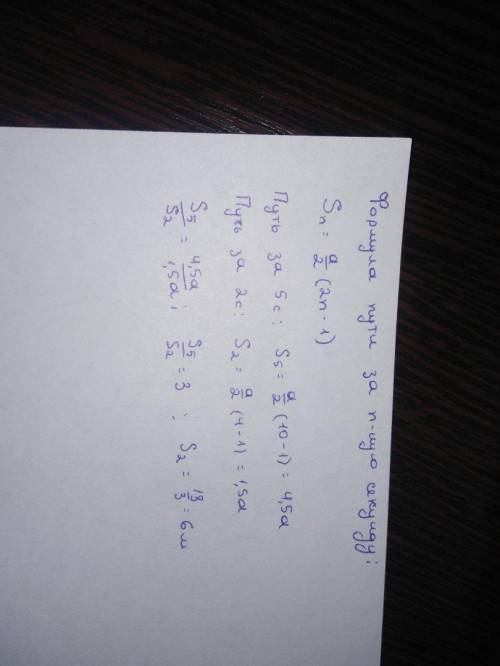 Формула пути за n-ную секунду:
Sn = a/2 (2n-1)
Путь за 5с: S5 = a/2 (10-1) = 4,5a
Путь за 2с: S2 = a/2 (4-1) = 1,5a
S5/S2 = 4,5a/1,5a; S5/S2 = 3; S2 = 18/3 = 6м